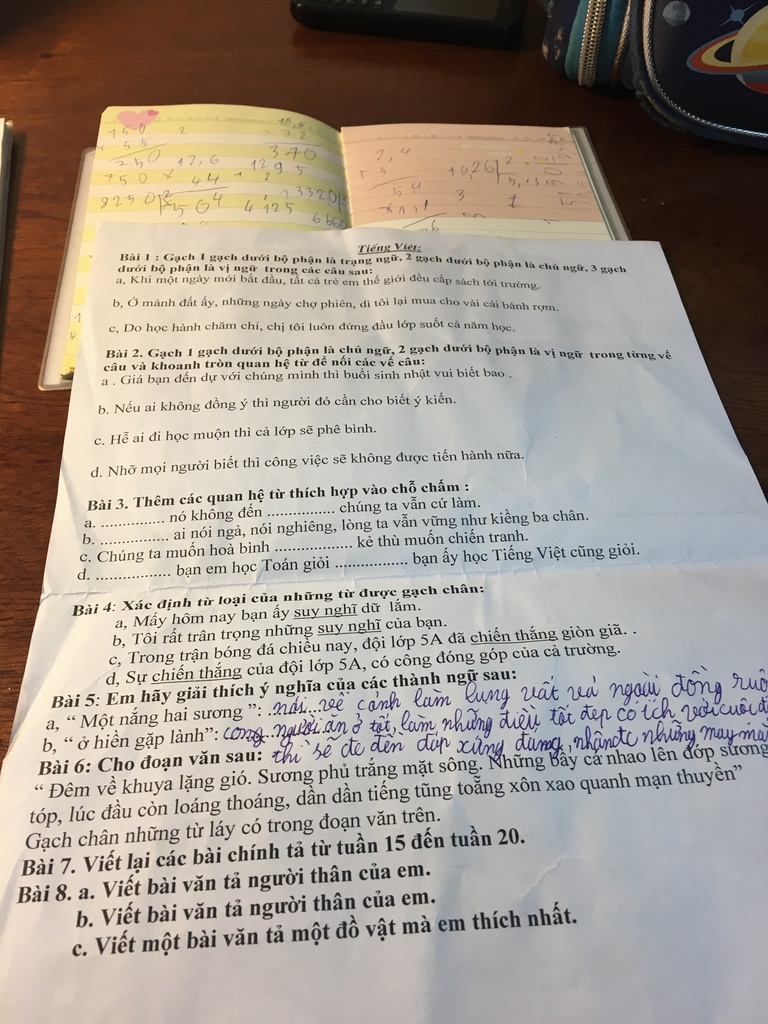 150 2 18,5
55 7,2
250 12,6 370
750 × 44 + 1295
8250 504 4125 13320
6660
2,4
10,26 2
54 3 1
Tiếng Việt:
Bài 1 : Gạch 1 gạch dưới bộ phận là trạng ngữ, 2 gạch dưới bộ phận là chủ ngữ, 3 gạch
dưới bộ phận là vị ngữ trong các câu sau:
a, Khi một ngày mới bắt đầu, tất cả trẻ em thế giới đều cắp sách tới trường.
b, Ở mảnh đất ấy, những ngày chợ phiên, dì tôi lại mua cho vài cái bánh rợm.
c, Do học hành chăm chỉ, chị tôi luôn đứng đầu lớp suốt cả năm học.
Bài 2. Gạch 1 gạch dưới bộ phận là chủ ngữ, 2 gạch dưới bộ phận là vị ngữ trong từng vế
câu và khoanh tròn quan hệ từ để nối các vế câu:
a . Giá bạn đến dự với chúng mình thì buổi sinh nhật vui biết bao .
b. Nếu ai không đồng ý thì người đó cần cho biết ý kiến.
c. Hễ ai đi học muộn thì cả lớp sẽ phê bình.
d. Nhỡ mọi người biết thì công việc sẽ không được tiến hành nữa.
Bài 3. Thêm các quan hệ từ thích hợp vào chỗ chấm :
a. ............... nó không đến ................ chúng ta vẫn cứ làm.
b. ................. ai nói ngả, nói nghiêng, lòng ta vẫn vững như kiềng ba chân.
c. Chúng ta muốn hoà bình .................. kẻ thù muốn chiến tranh.
d. .................. bạn em học Toán giỏi ................. bạn ấy học Tiếng Việt cũng giỏi.
Bài 4: Xác định từ loại của những từ được gạch chân:
a, Mấy hôm nay bạn ấy suy nghĩ dữ lắm.
b, Tôi rất trân trọng những suy nghĩ của bạn.
c, Trong trận bóng đá chiều nay, đội lớp 5A đã chiến thắng giòn giã. .
d, Sự chiến thắng của đội lớp 5A, có công đóng góp của cả trường.
Bài 5: Em hãy giải thích ý nghĩa của các thành ngữ sau:
a, “ Một nắng hai sương ”: nói về cảnh làm lụng vất vả ngoài đồng ruộ
b, “ ở hiền gặp lành”: cong người ăn ở tốt, làm những điều tốt đẹp có ích với cuộc đ
thì sẽ đc đền đáp xứng đáng, nhận đc những may mắ
Bài 6: Cho đoạn văn sau:
“ Đêm về khuya lặng gió. Sương phủ trắng mặt sông. Những bầy cá nhao lên đớp sương
tóp, lúc đầu còn loáng thoáng, dần dần tiếng tũng toẵng xôn xao quanh mạn thuyền”
Gạch chân những từ láy có trong đoạn văn trên.
Bài 7. Viết lại các bài chính tả từ tuần 15 đến tuần 20.
Bài 8. a. Viết bài văn tả người thân của em.
b. Viết bài văn tả người thân của em.
c. Viết một bài văn tả một đồ vật mà em thích nhất.